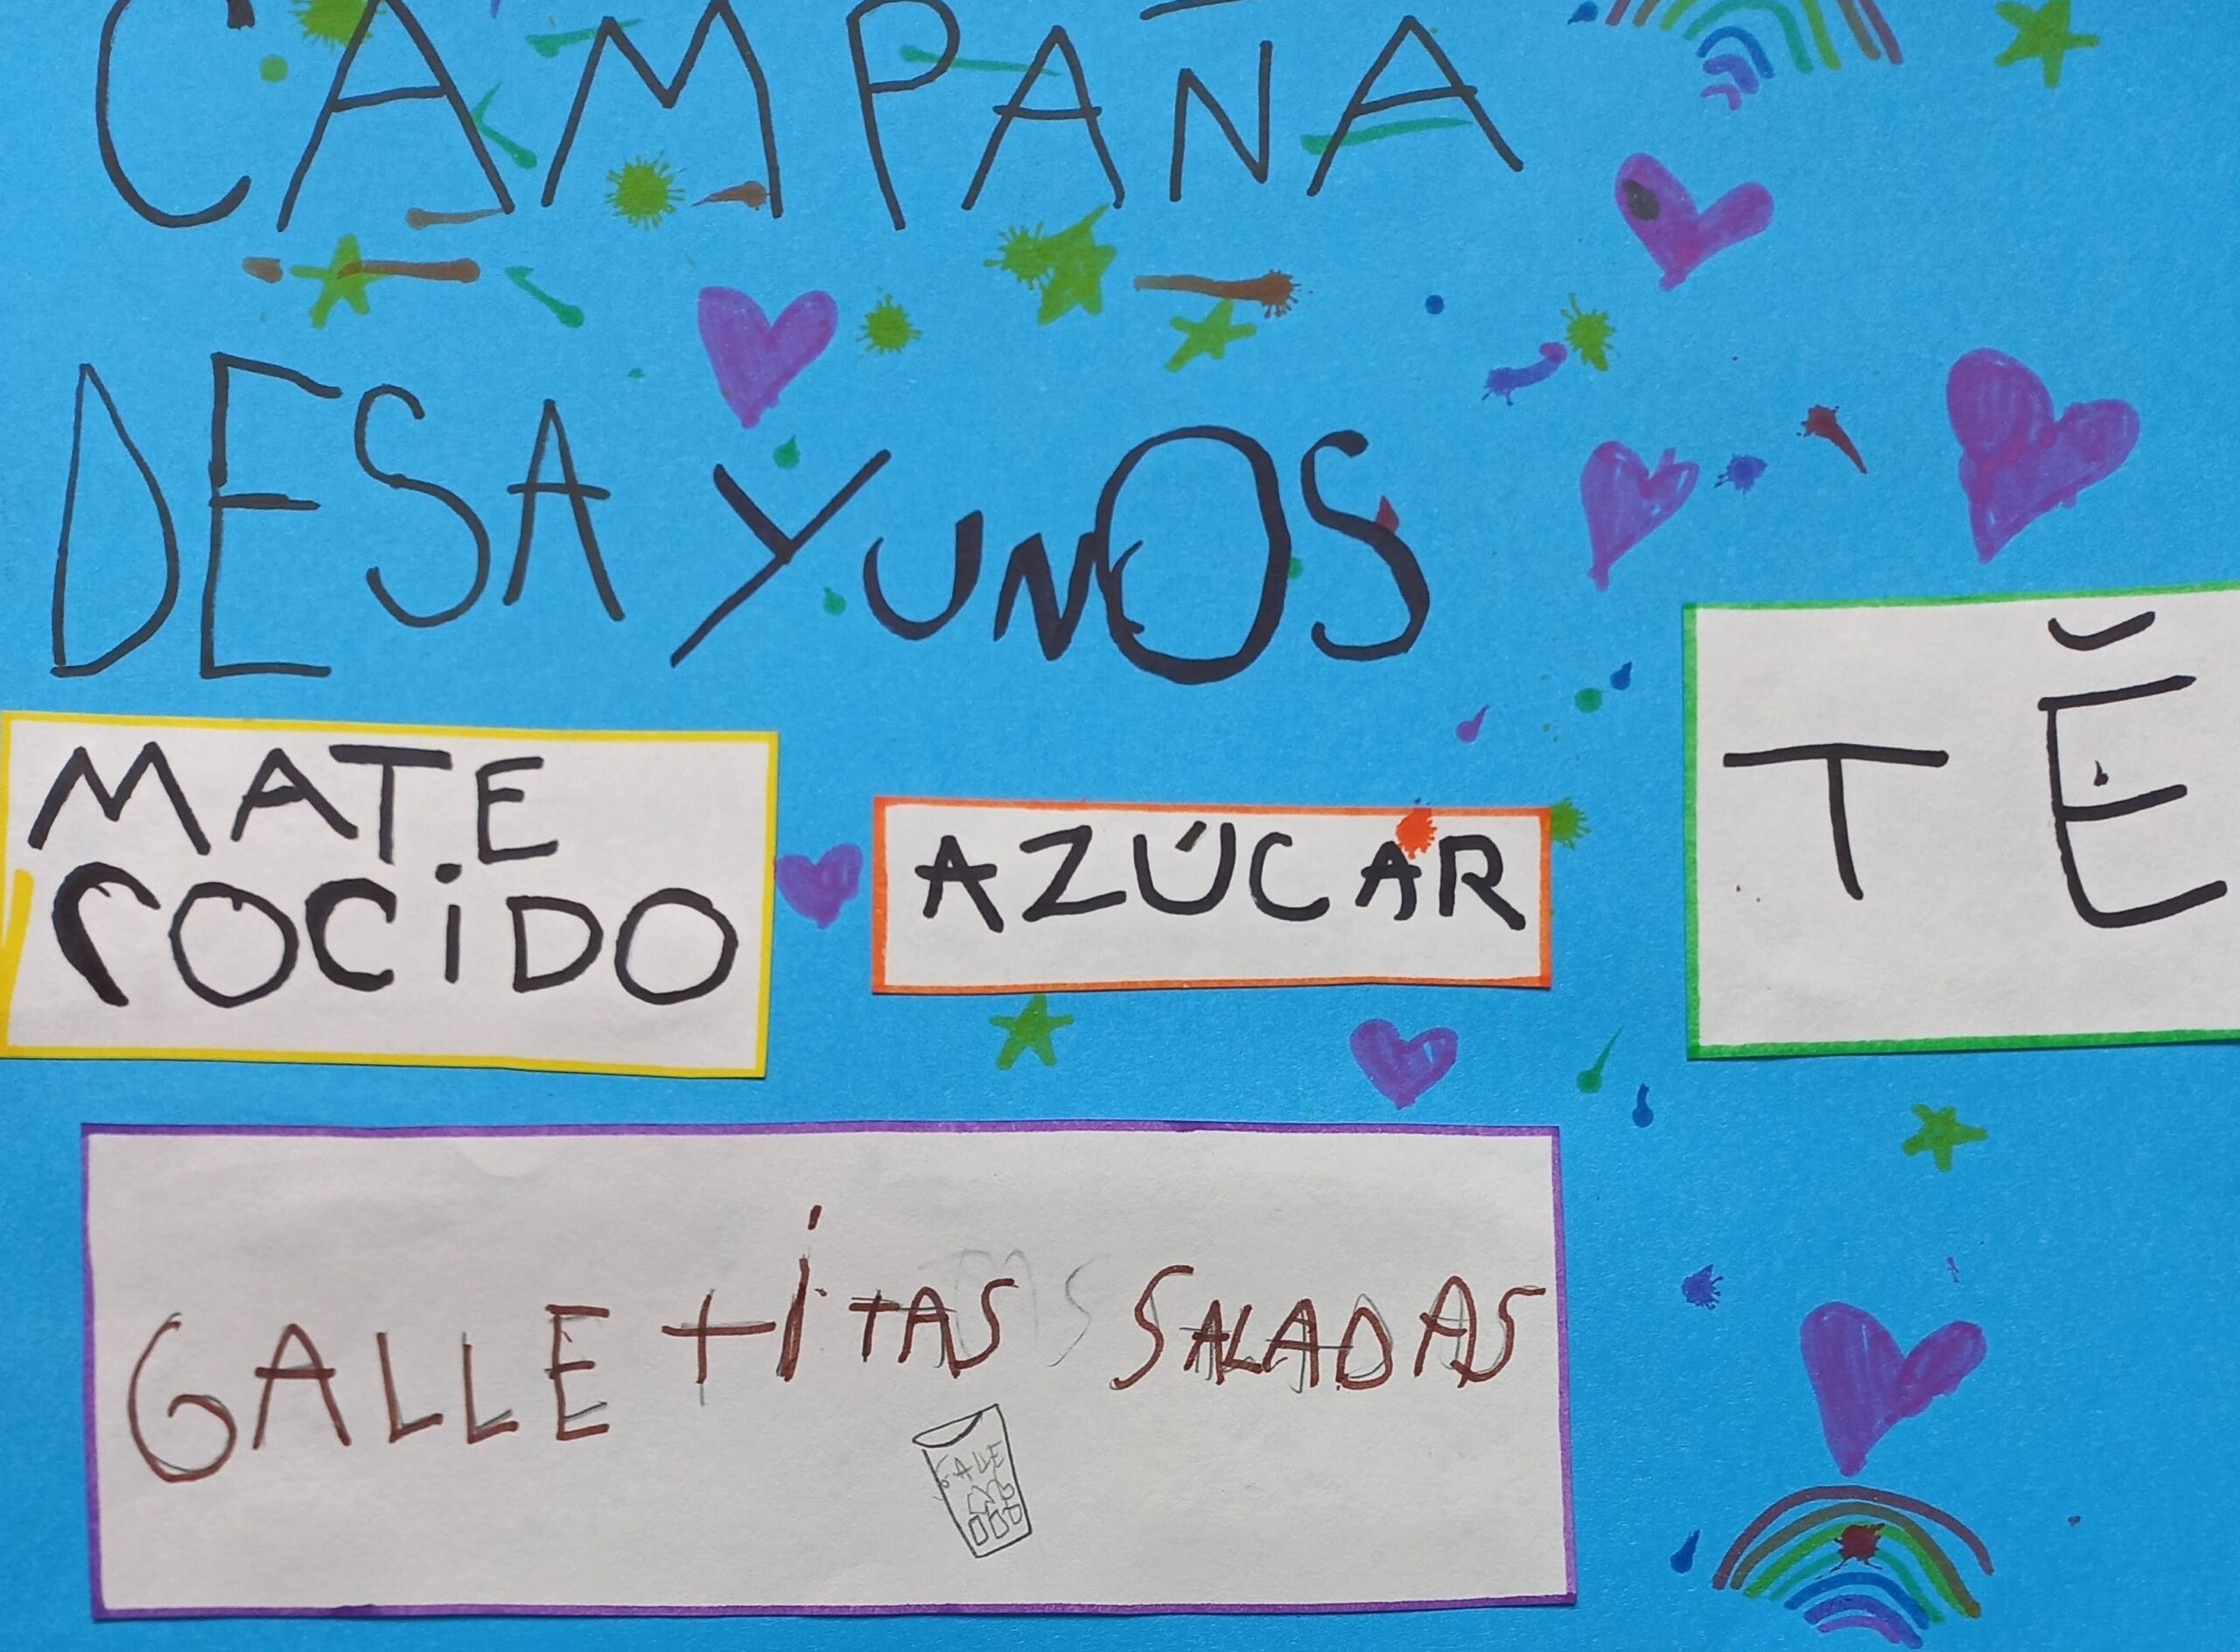 CAMPAÑA
DESAYUNOS
MATE
COCIDO
AZÚCAR
TĔ
GALLEtitAS SALADAS
GALLE